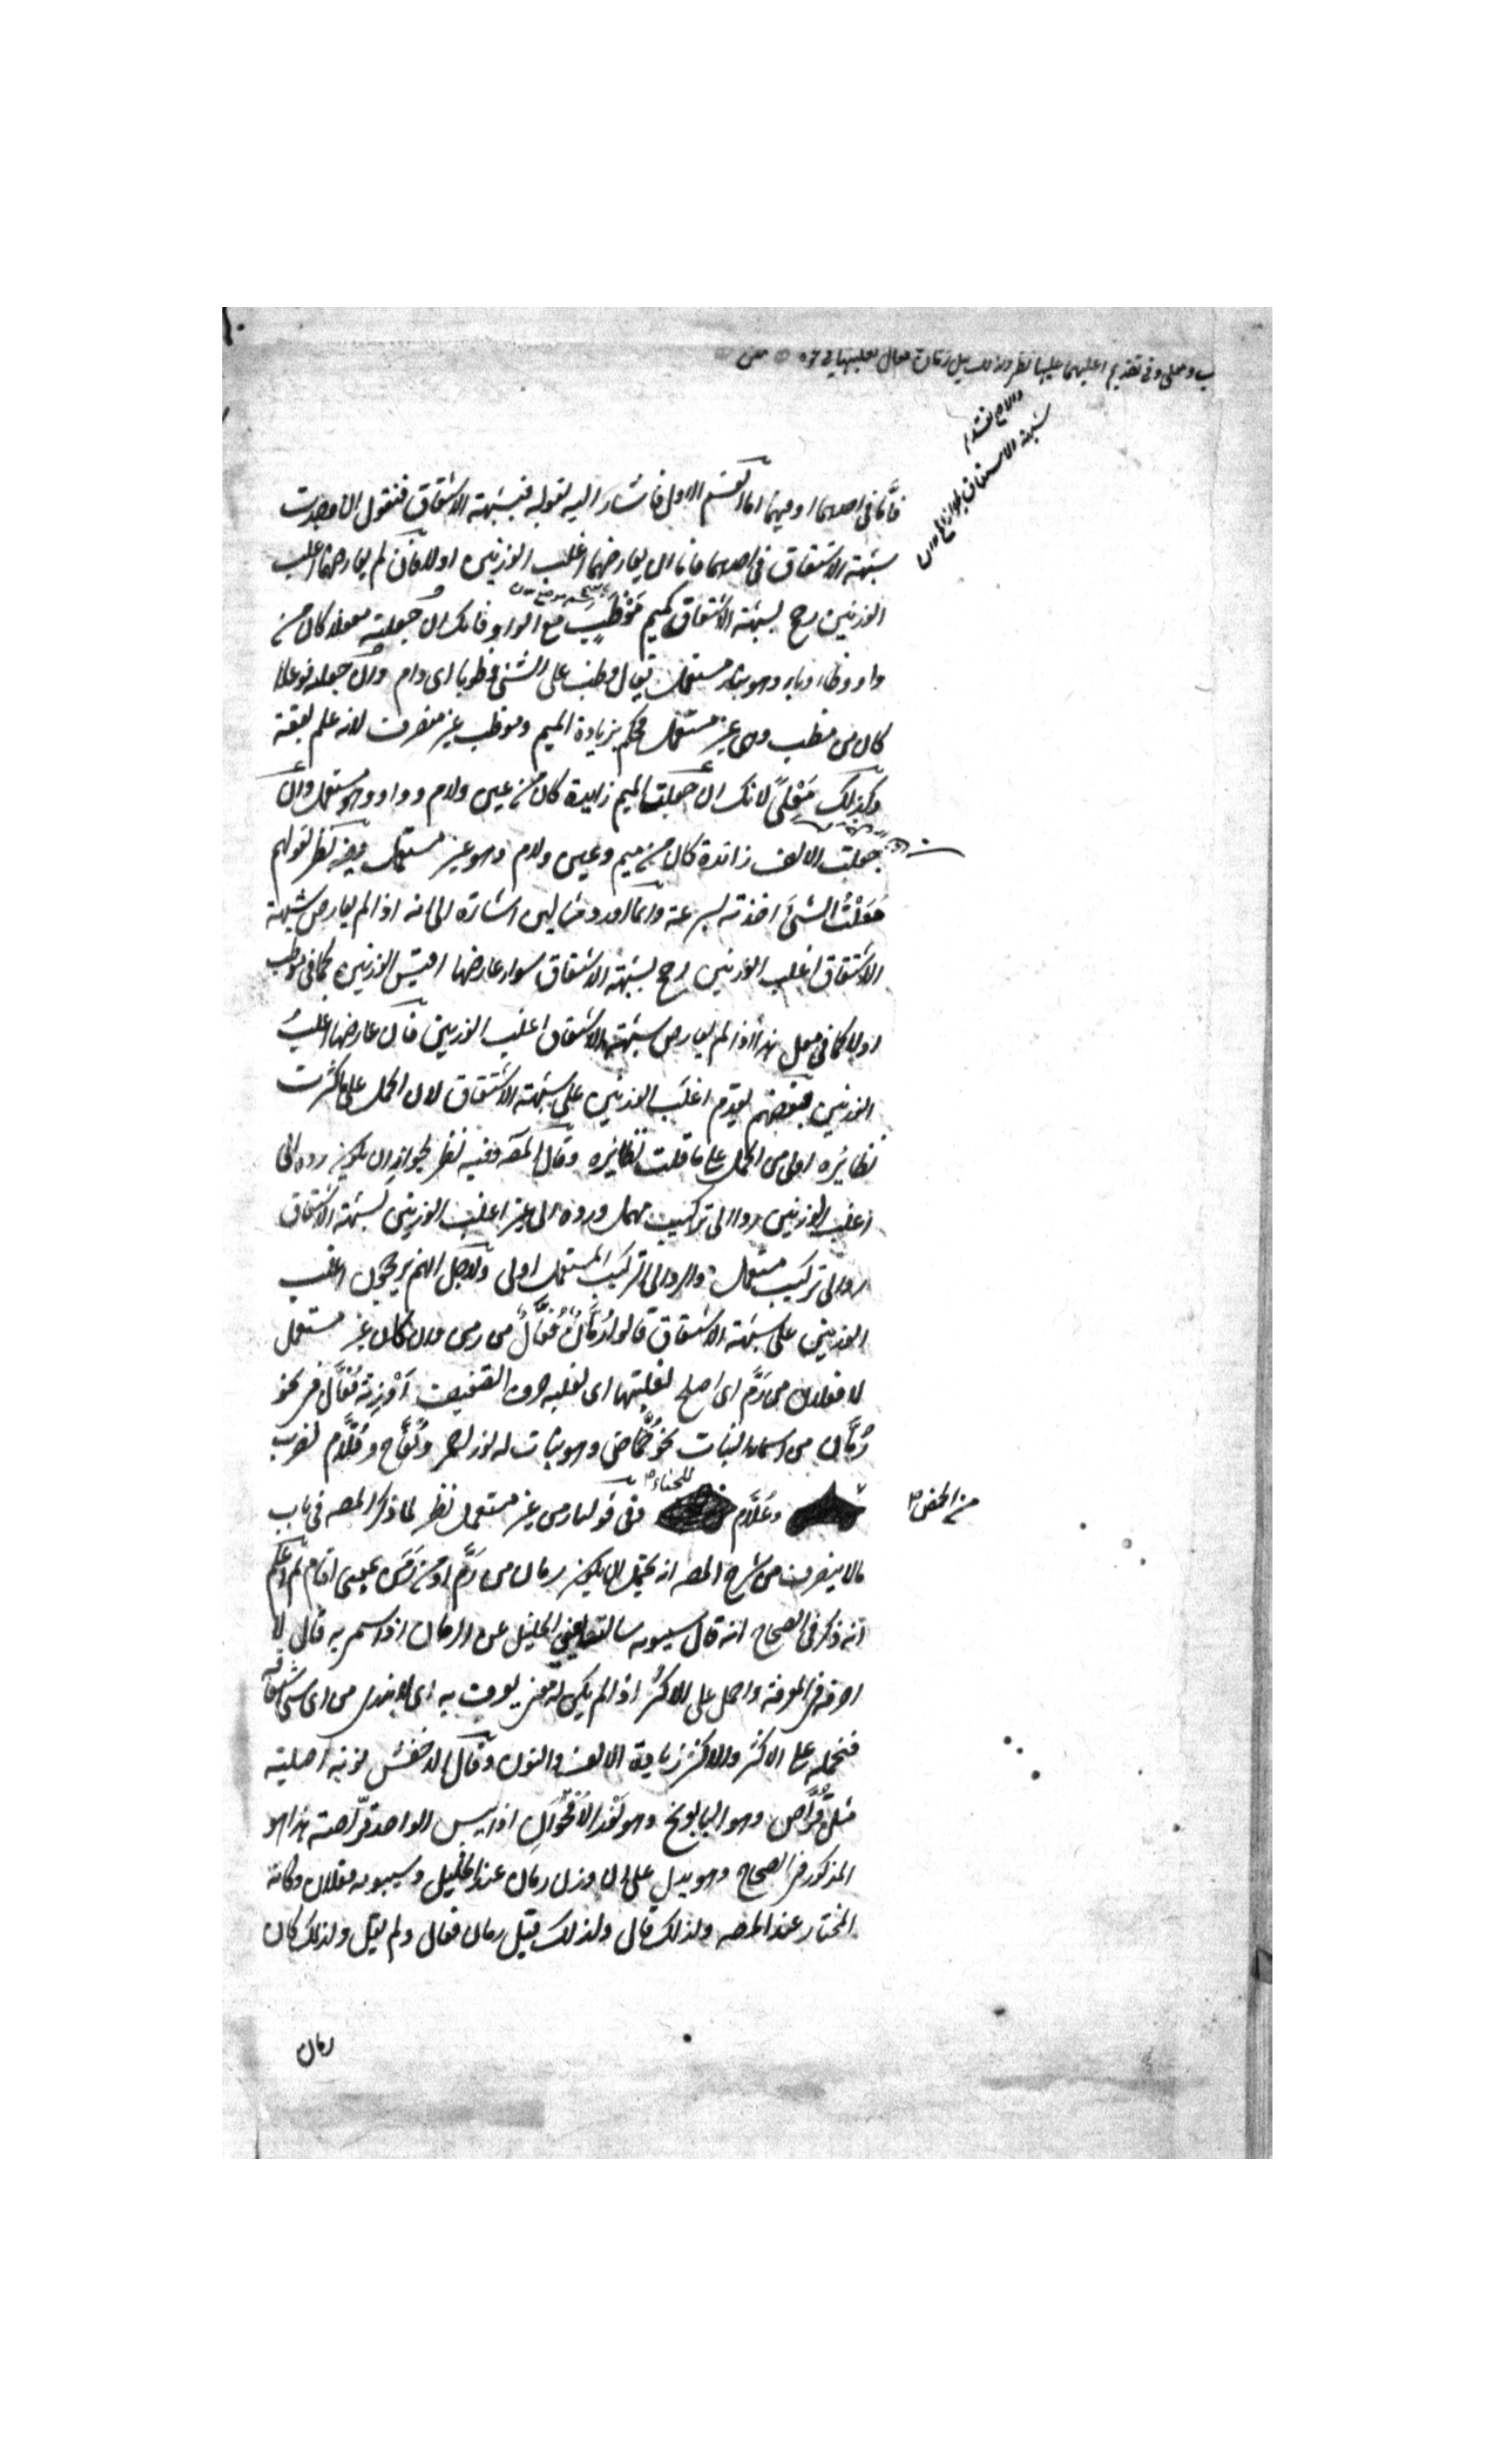 فأما في احدهما او فيهما اما القسم الاول فاشار اليه بقوله فبشبهة الاشتقاق فنقول ان وجدت
شبهة الاشتقاق في احدهما فاما ان يعارضها اغلب الوزنين او لا فان لم يعارضها اغلب
الوزنين رجح بشبهة الاشتقاق كميم مَوْظَبٍ مع الواو فانك ان جعلته مفعلا كان من
واو وظاء وباء وهو بناء مستعمل يقال وظب على الشئ وظوبا اى دام وان جعلته فوعلا
كان من مظب وهى غير مستعمل فحكم بزيادة الميم وموظب غير منصرف لانه علم لبقعة
وكذلك مَعْلًى لانك ان جعلت الميم زايدة كان من عين ولام وواو وهو مستعمل وان
جعلت الالف زائدة كان من ميم وعين ولام وهو غير مستعمل وفيه نظر لقولهم
مَعَلْتُ الشئَ اخذته بسرعة وانما اورد مثالين اشارة الى انه اذا لم يعارض شبهة
الاشتقاق اغلب الوزنين رجح بشبهة الاشتقاق سواء عارضها اقيس الوزنين كما في موظب
او لا كما في معلى هذا اذا لم يعارض شبهة الاشتقاق اغلب الوزنين فان عارضها اغلبُ
الوزنين فبعضهم يقدم اغلب الوزنين على شبهة الاشتقاق لان الحمل على ما كثرت
نظايره اولى من الحمل على ما قلت نظايره وقال المص وفيه نظر لجواز ان يكون رده الى
اغلب الوزنين ردا الى تركيب مهمل ورده الى غير اغلب الوزنين لشبهة الاشتقاق
ردا الى تركيب مستعمل والرد الى التركيب المستعمل اولى ولاجل انهم يرجحون اغلب
الوزنين على شبهة الاشتقاق قالوا رُمَّانٌ فُعَّالٌ من رمن وان كان غير مستعمل
لا فعلان من رَمَّ اى اصلح لغلبتها اى لغلبة حروف التضعيف اوزنة فُعَّال في نحو
رُمَّان من اسماء النبات نحو حُمَّاض وهو نبات له نور احمر وتُفَّاح وقُلَّام لضرب
من الحمض
وعُلَّام للحناء ففي قولنا رمن غير مستعمل نظر لما ذكر المصـ في باب
مالا ينصرف من شرح المصـ انه يحتمل ان يكون رمان من رَمَّ او من رَمَن بمعنى اقام ثم اعلم
انه ذكر في الصحاح انه قال سيبويه سالته يعني الخليل عن الرمان اذا سمى به قال لا
اصرفه في المعرفة واحمل على الاكثر اذا لم يكن له معنى يعرف به اى لا يدرى من اى شئ اشتقاقه
فنحمله على الاكثر والاكثر زيادة الالف والنون وقال الاخفش نونه اصلية
مثل قُرَّاص وهو البابونج وهو نَوْر الاُقحوان اذا يبس الواحدة قرّاصة هذا هو
المذكور في الصحاح وهو يدل على ان وزن رمان عند الخليل وسيبويه فعلان وكانه
المختار عند المصـ ولذلك قال ولذلك قيل رمان فعال ولم يقل ولذلك كان
رمان